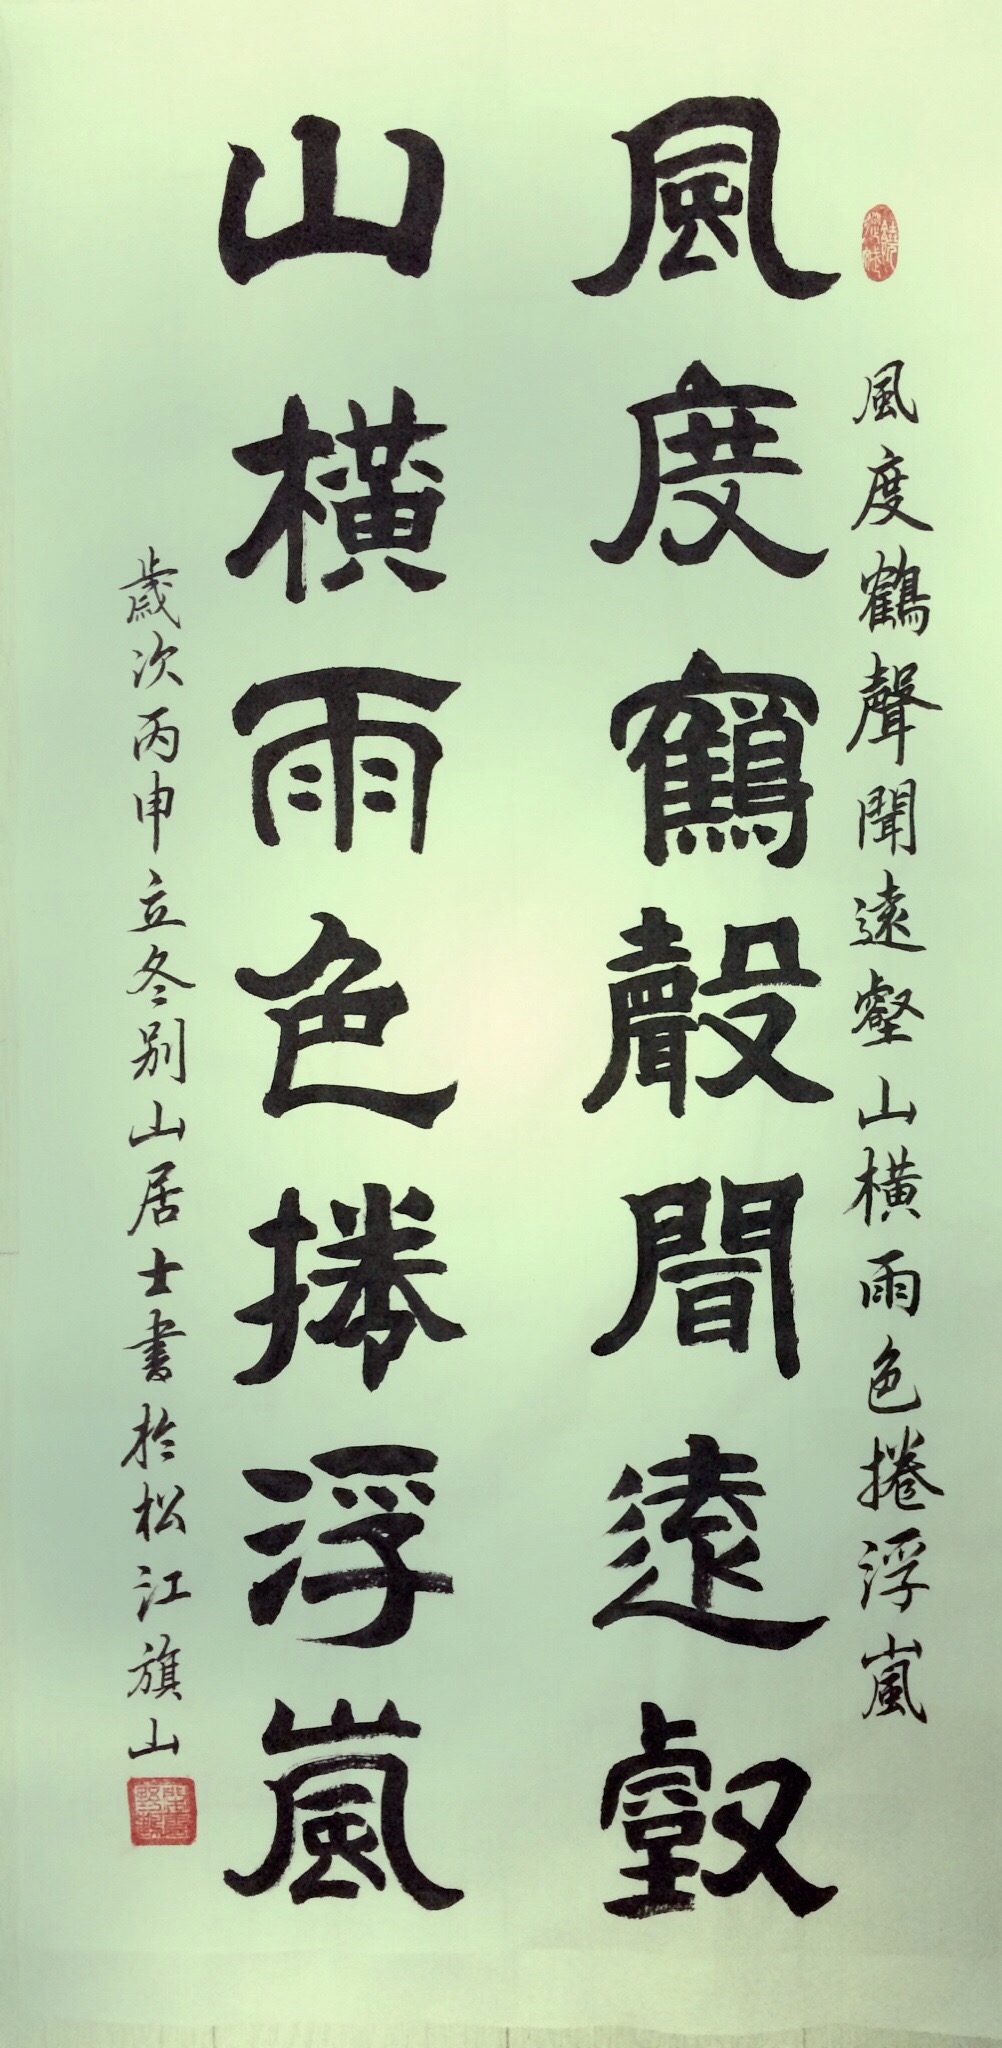 風度鶴聲聞遠壑山橫雨色捲浮嵐
風度鶴聲聞遠壑
山橫雨色捲浮嵐
歲次丙申立冬別山居士書於松江旗山